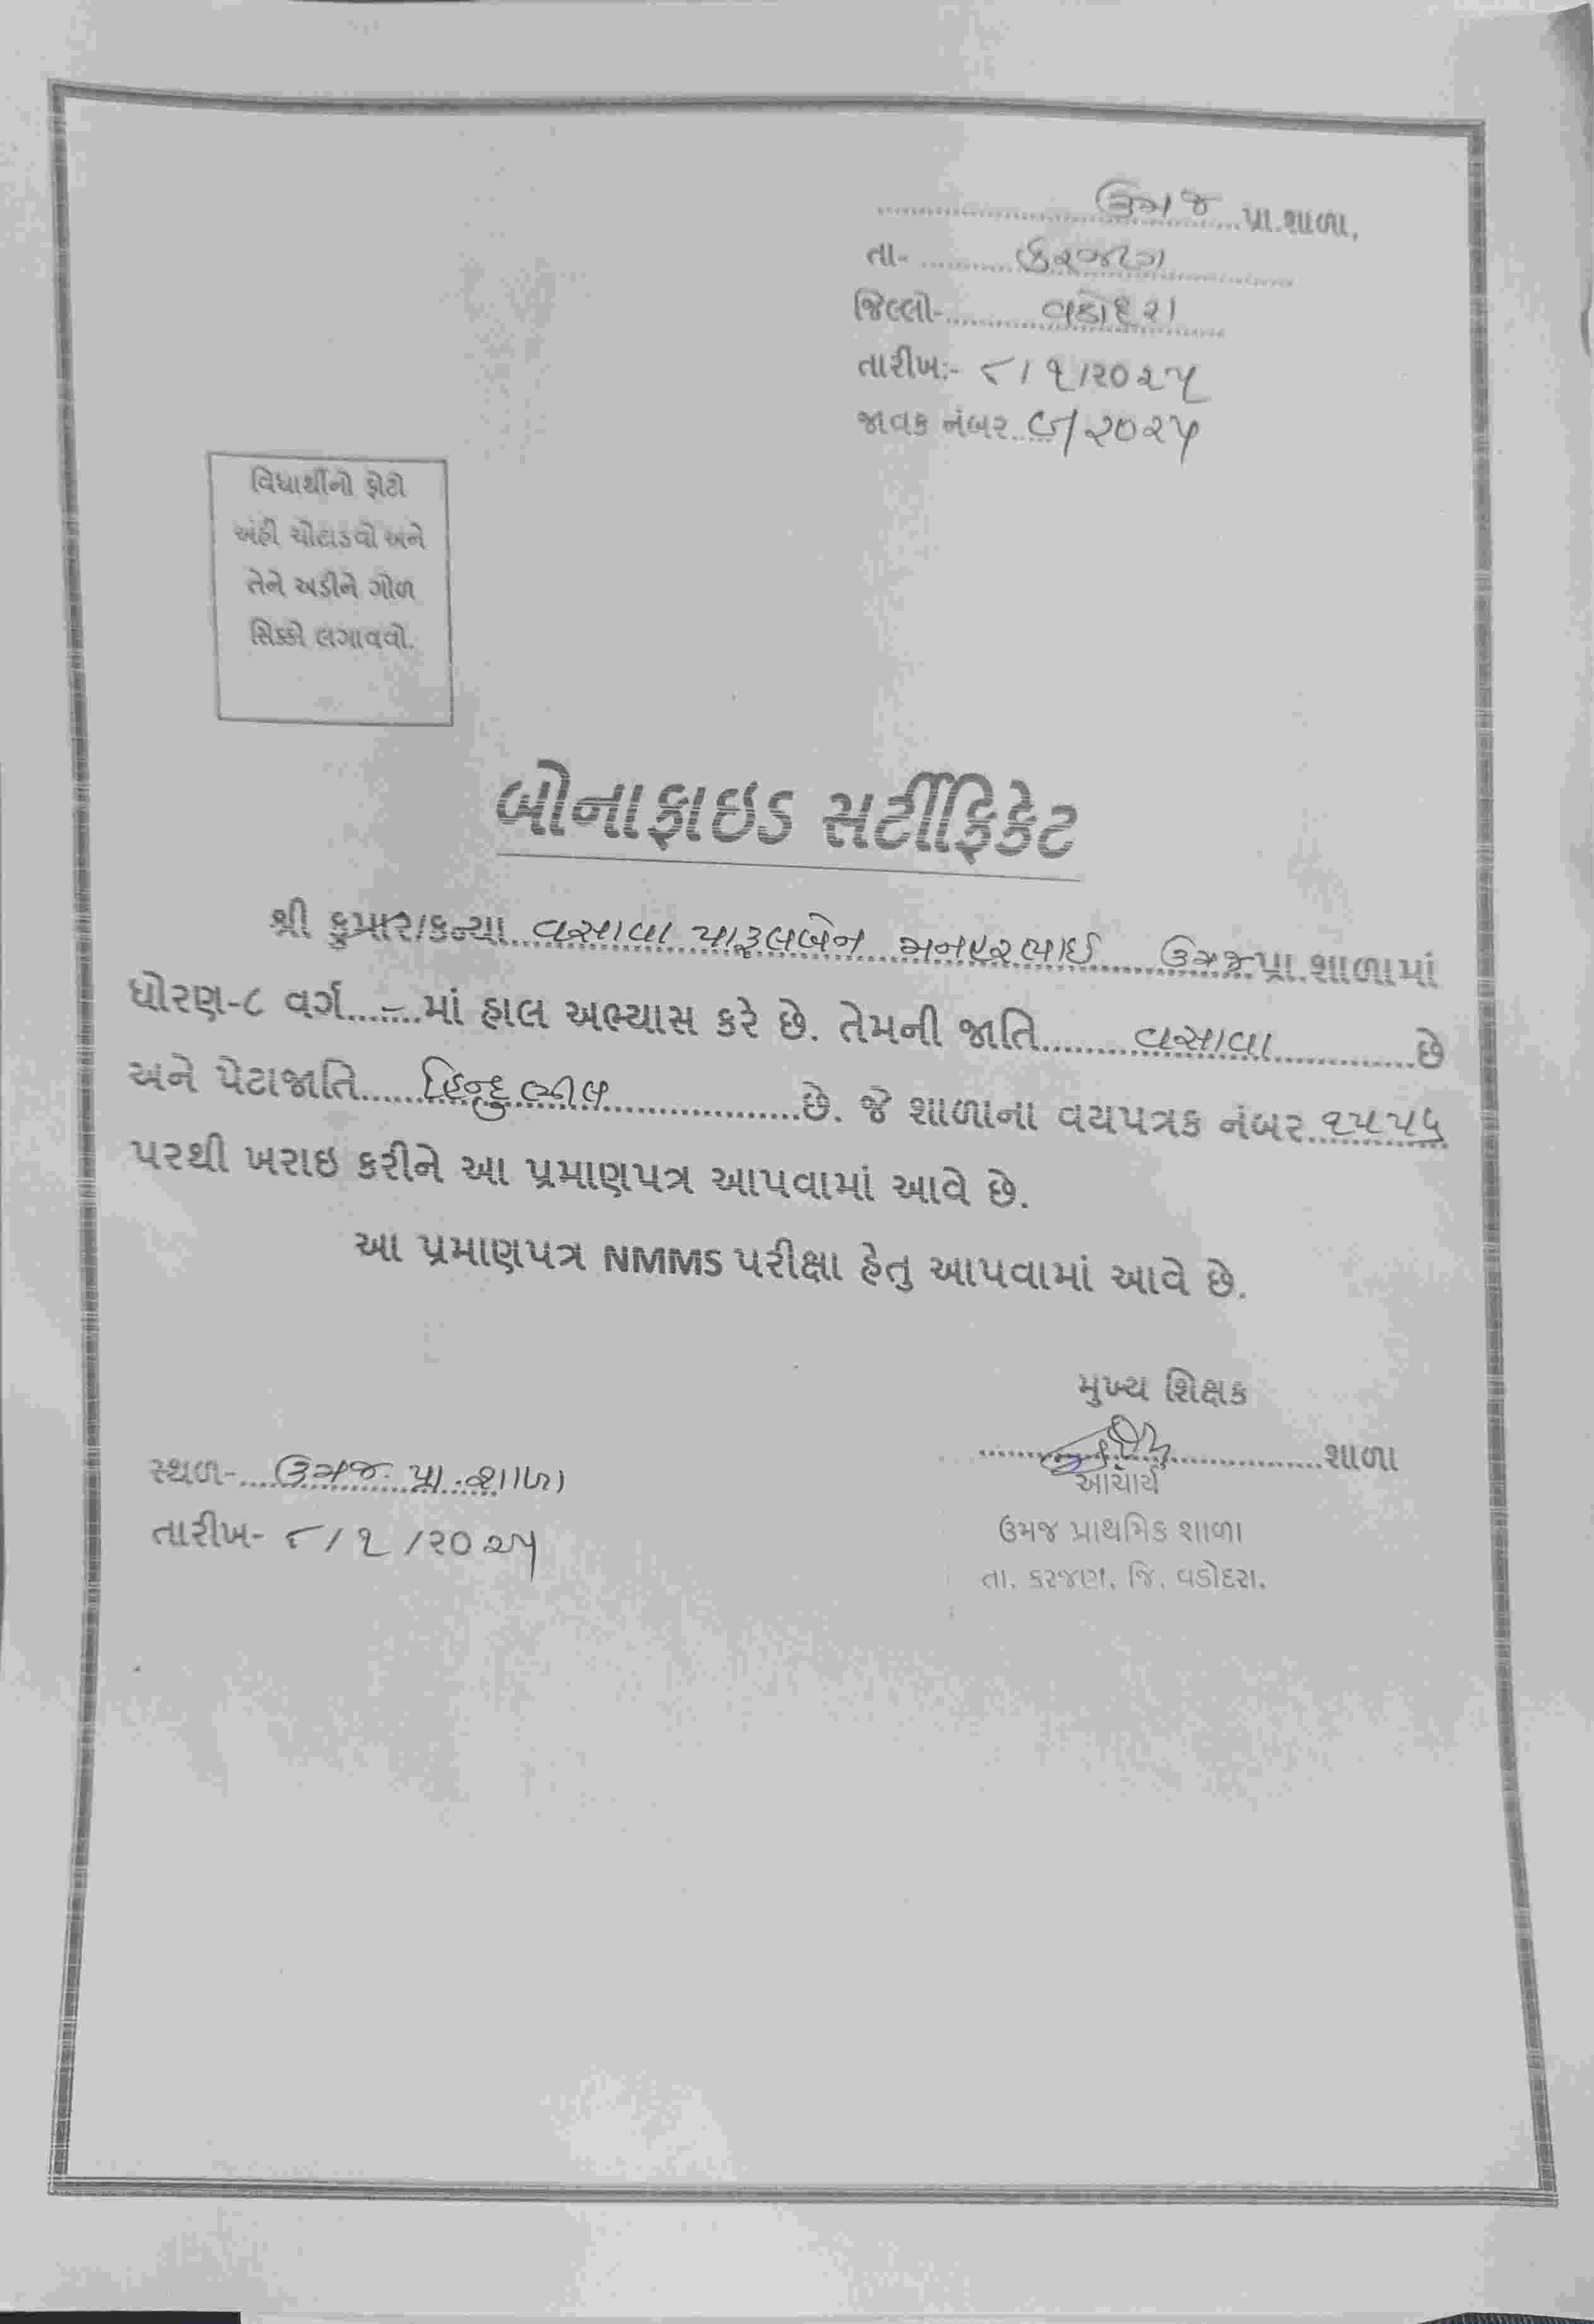 ઉમજ પ્રા.શાળા,
તા- કરજણ
જિલ્લો- વડોદરા
તારીખ:- ૮/૧/૨૦૨૫
જાવક નંબર ૯/૨૦૨૫
વિધાર્થીનો ફોટો
અંહી ચોટાડવો અને
તેને અડીને ગોળ
સિક્કો લગાવવો.
બોનાફાઇડ સર્ટીફિકેટ
શ્રી કુમાર/કન્યા વસાવા પારૂલબેન મનહરભાઈ ઉમજ પ્રા.શાળામાં
ધોરણ-૮ વર્ગ - માં હાલ અભ્યાસ કરે છે. તેમની જાતિ વસાવા છે
અને પેટાજાતિ હિન્દુ ભીલ છે. જે શાળાના વયપત્રક નંબર ૧૫૫૫
પરથી ખરાઇ કરીને આ પ્રમાણપત્ર આપવામાં આવે છે.
આ પ્રમાણપત્ર NMMS પરીક્ષા હેતુ આપવામાં આવે છે.
મુખ્ય શિક્ષક
શાળા
આચાર્ય
ઉમજ પ્રાથમિક શાળા
તા. કરજણ, જિ. વડોદરા.
સ્થળ- ઉમજ પ્રા.શાળા
તારીખ- ૮/૧/૨૦૨૫